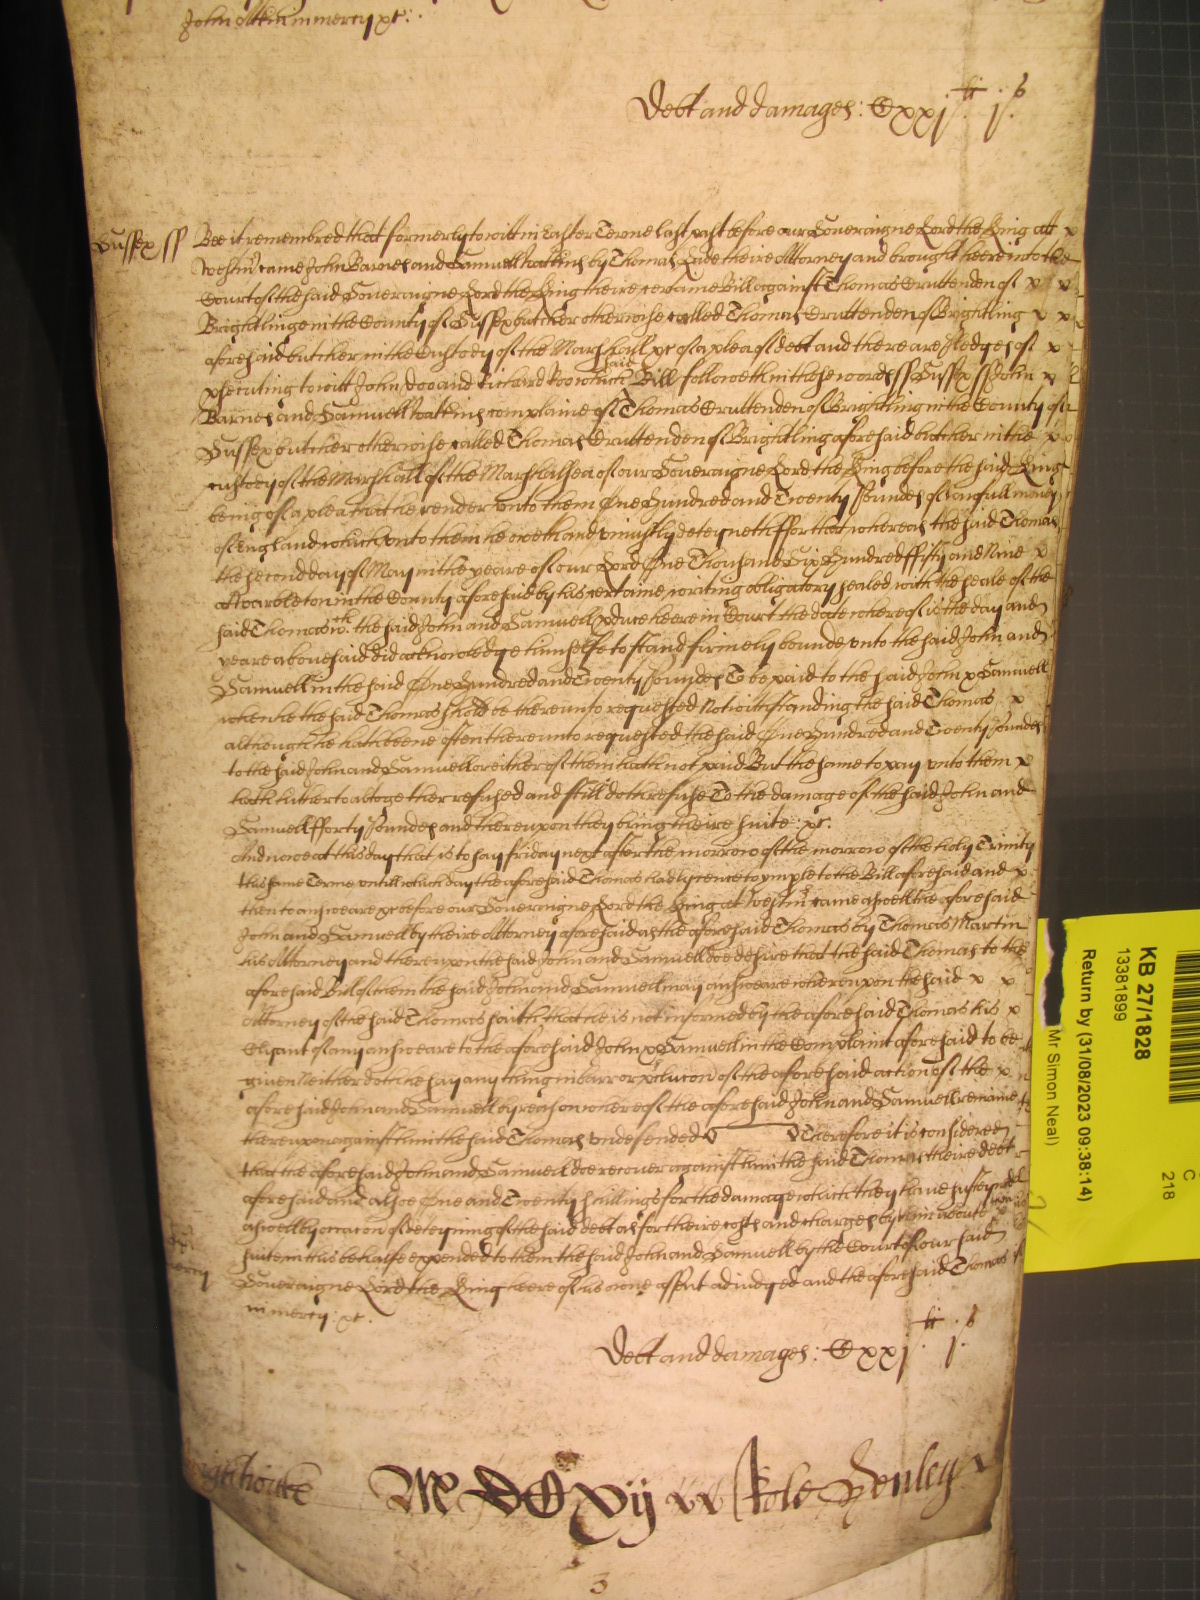 John Atkin in mercy &c:.
Debt and damages: Cxxj li. j s.
Sussex ss Bee it remembred that formerly to witt in Easter Terme last past before our Soveraigne Lord the King att x
Westmr came John Barnes and Samuell Watkins by Thomas Lade theire Attorney and brought heere into the
Court of the said Soveraigne Lord the King theire certaine Bill against Thomas Cruttenden of x x
Brightlinge in the County of Sussex butcher otherwise called Thomas Cruttenden of Brightling x x
aforesaid butcher in the Custody of the Marshall &c of a plea of debt and there are pledges of x
p'secuting to witt John Doo and Richard Roo which said Bill followeth in these words ss Sussex ss John x
Barnes and Samuell Watkins complaine of Thomas Cruttenden of Brightling in the County of
Sussex butcher otherwise called Thomas Cruttenden of Brightling aforesaid butcher in the x
custody of the Marshall of the Marshalsea of our Soveraigne Lord the King before the said King
being of a plea that he render unto them One Hundred and Twenty Poundes of lawfull money
of England which unto them he oweth and uniustly deteyneth ffor that whereas the said Thomas
the second day of May in the yeare of our Lord One Thousand Six Hundred ffifty and Nine x
att Warbleton in the County aforesaid by his certaine writing obligatory sealed with the seale of the
said Thomas wch the said John and Samuell p'duce heere in Court the date whereof is the day and
yeare abovesaid did acknowledge himselfe to stand firmely bounde unto the said John and
Samuell in the said One Hundred and Twenty Poundes To be paid to the said John & Samuell
when he the said Thomas should be thereunto requested Notwithstanding the said Thomas x
although he hath beene often thereunto requested the said One Hundred and Twenty Poundes
to the said John and Samuell or either of them hath not paid But the same to pay unto them x
hath hitherto altogether refused and still doth refuse To the damage of the said John and
Samuell fforty Poundes and thereupon they bring theire suite: &c.
And now at this day that is to say friday next after the morrow of the morrow of the holy Trinity
this same Terme untill which day the aforesaid Thomas had lycence to imparle to the Bill aforesaid and x
then to answeare &c before our Soveraigne Lord the King at Westmr came aswell the aforesaid
John and Samuell by theire Attorney aforesaid as the aforesaid Thomas by Thomas Martin
his Attorney and thereupon the said John and Samuell doe desire that the said Thomas to the
aforesaid Bill of them the said John and Samuell may answeare whereupon the said x x
Attorney of the said Thomas saith that he is not informed by the aforesaid Thomas his x
Clyant of any answeare to the aforesaid John & Samuell in the Complaint aforesaid to be
given Neither doth he say any thing in barr or p'clucon of the aforesaid action of the x
aforesaid John and Samuell by reason whereof the aforesaid John and Samuell remaine
thereupon against him the said Thomas undefended Therefore it is considered
that the aforesaid John and Samuell doe recover against him the said Thomas theire debt
aforesaid and alsoe One and Twenty shillings for the damage which they have susteyned
aswell by occacon of deteyning of the said debt as for theire costs and charges by them about their
suite in this behalfe expended to them the said John and Samuell by the Court of our said
Soveraigne Lord the King heere of his owne assent adiudged and the aforesaid Thomas
in mercy: &c.
mercy
Debt and damages: Cxxj li. j s.
MDCXvij xx Role Henley
3
KB 27/1828
13381899
Return by (31/08/2023 09:38:14)
Mr Simon Neal)
C
218